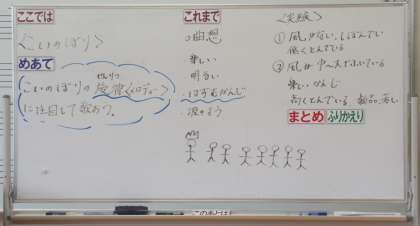 ここでは
〈こいのぼり〉
めあて
こいのぼりの旋律〈メロディー〉
せんりつ
に注目して歌おう。
これまで
○曲想
楽しい
明るい
・はずむかんじ
・波のよう
〈実感〉
①風が少ない、しぼんでい
低くとんでいる
②風が
楽しいかんじ
高くとんでいる
まとめ
ふりかえり